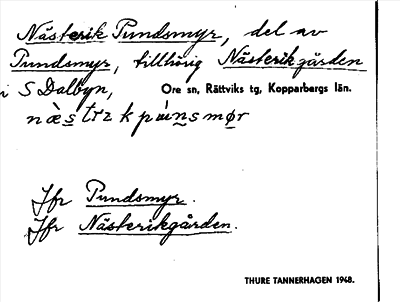 Nästerik Pundsmyr, del av
Pundsmyr, tillhörig Nästerikgården
i S Dalbyn, Ore sn, Rättviks tg, Kopparbergs län.
Jfr Pundsmyr.
Jfr Nästerikgården.
THURE TANNERHAGEN 1948.